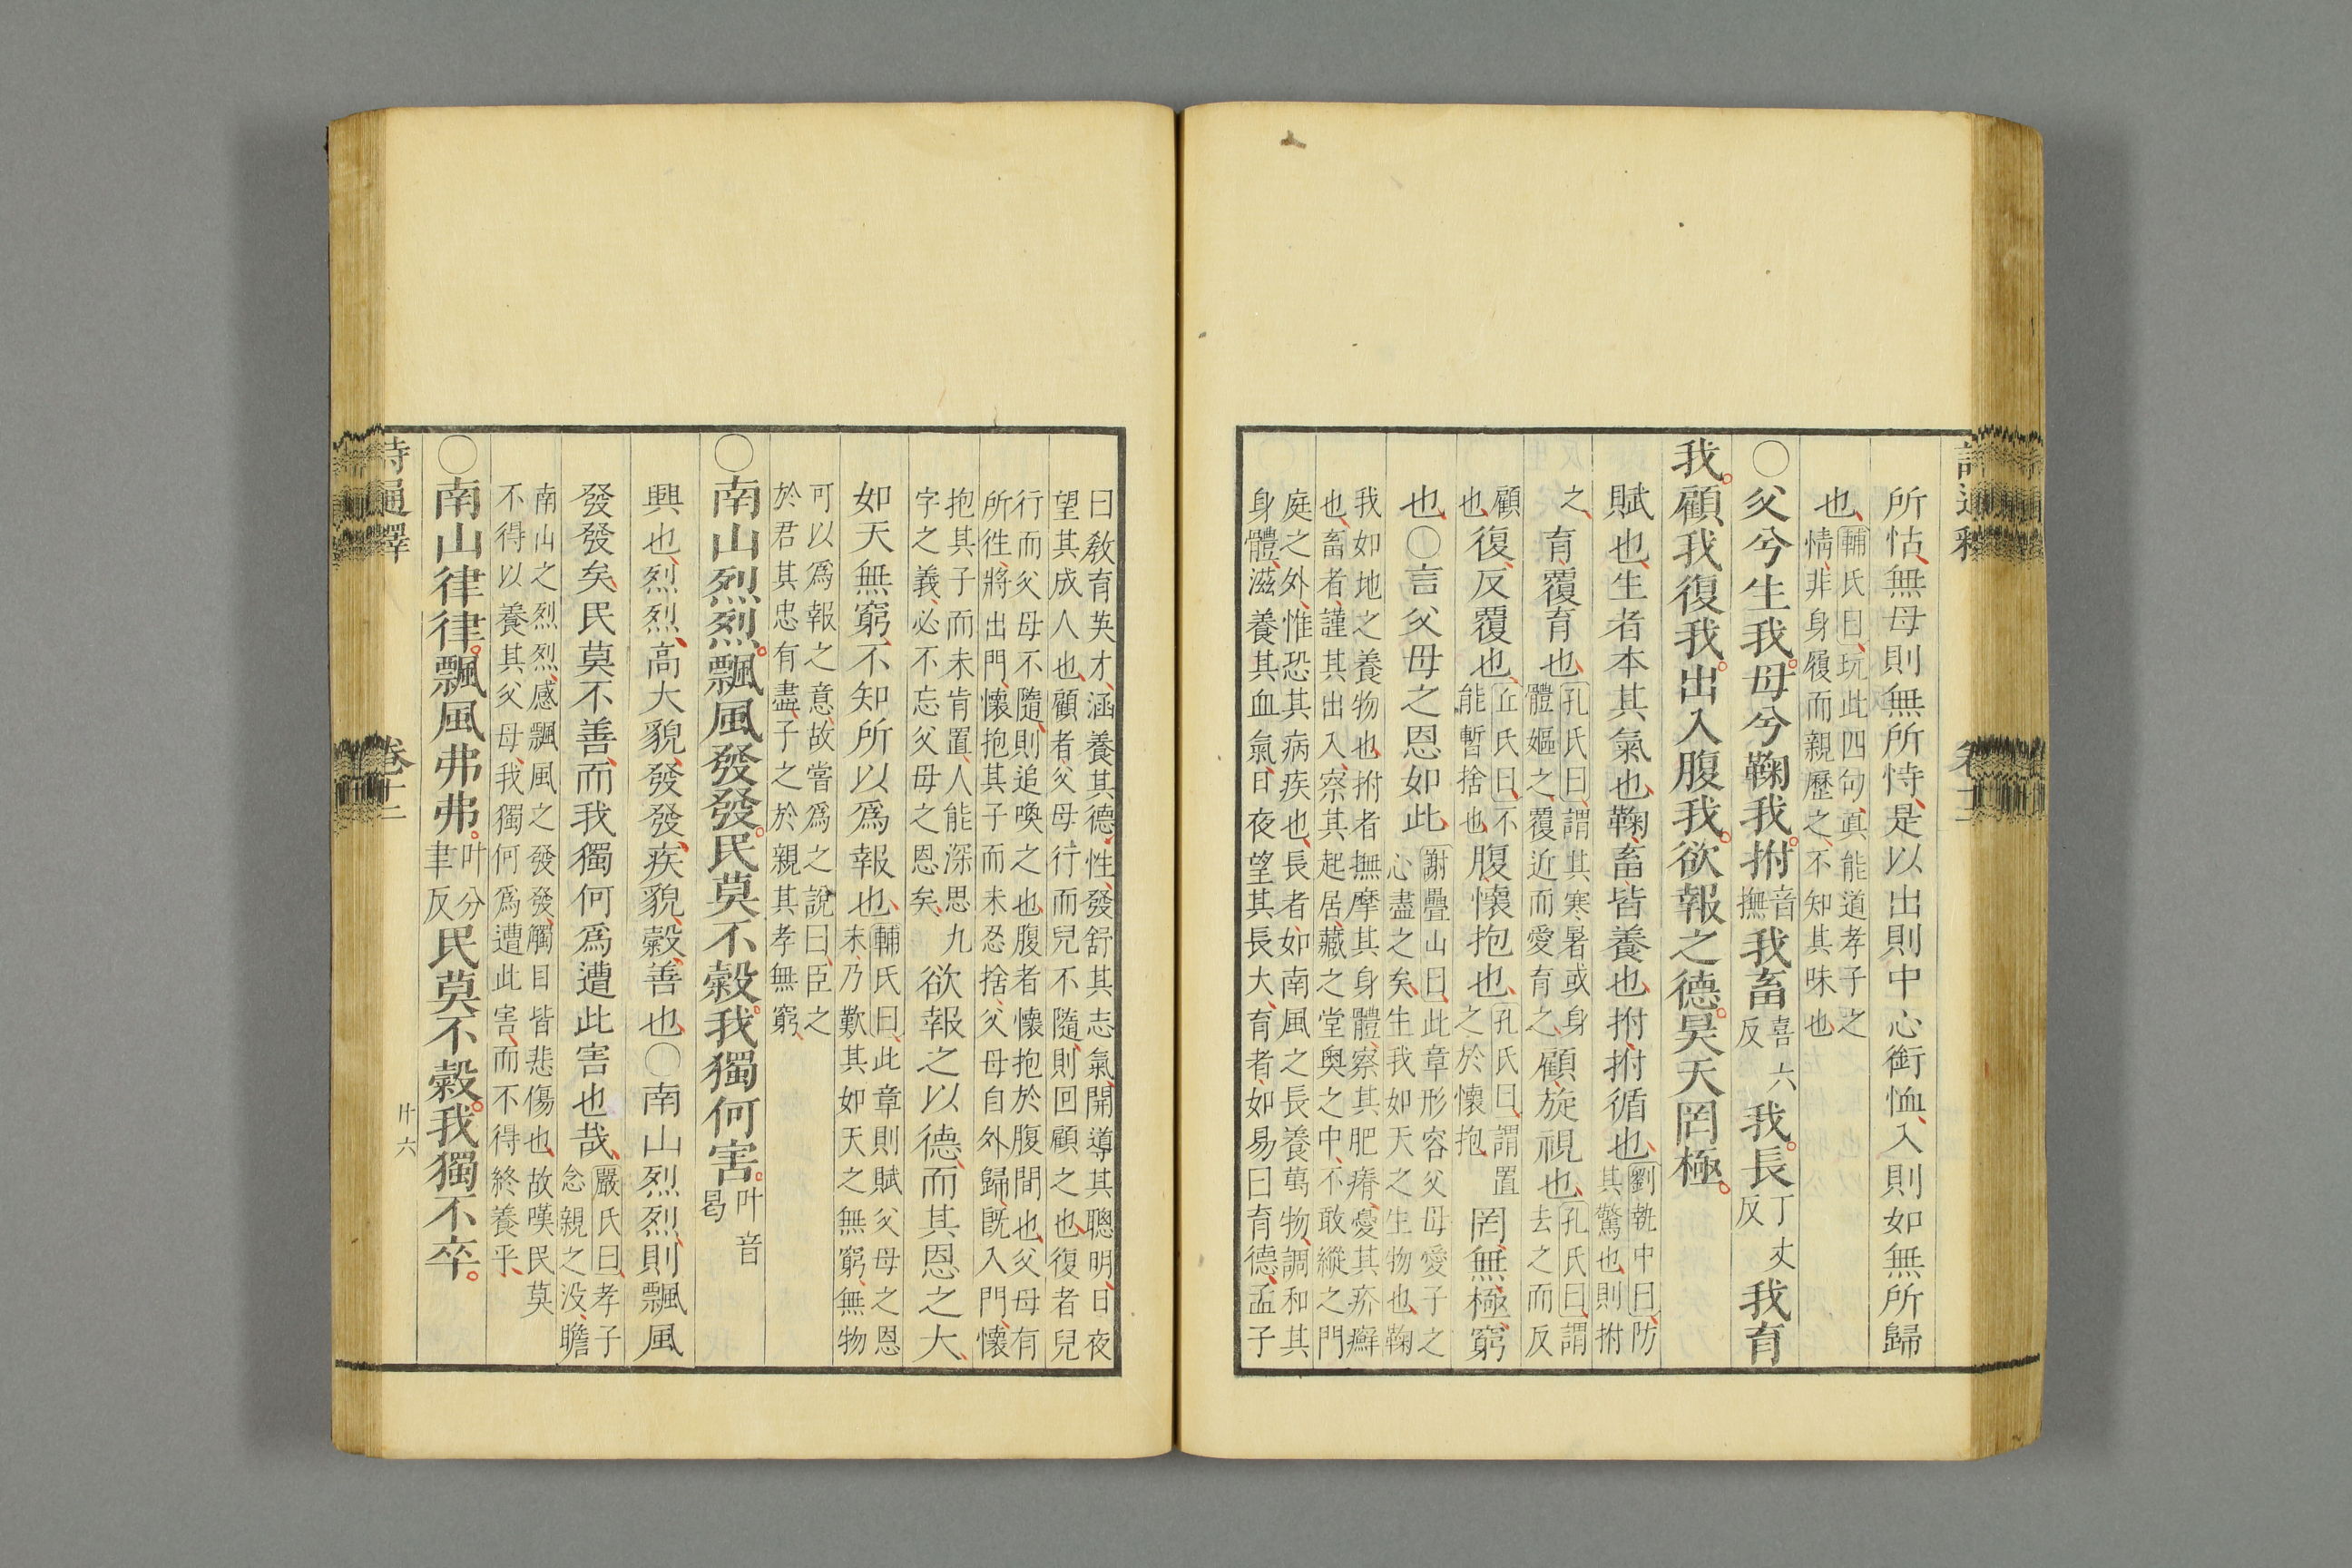 所怙、無母則無所恃、是以出則中心銜恤、入則如無所歸
也、輔氏曰、玩此四句、真能道孝子之
情、非身履而親歷之、不知其味也
〇父兮生我。母兮鞠我。拊音撫我畜喜六反我。長丁丈反我育
我。顧我復我。出入腹我。欲報之德。昊天罔極。
賦也、生者本其氣也、鞠、畜、皆養也、拊、拊循也、劉執中曰、防
其驚也、則拊
之、育、覆育也、孔氏曰、謂其寒暑或身
體嫗之、覆近而愛育之、顧、旋視也、孔氏曰、謂
去之而反
顧
也、復、反覆也、丘氏曰、不
能暫捨也、腹、懷抱也、孔氏曰、謂置
之於懷抱、罔、無、極、窮
也、〇言父母之恩如此、謝疊山曰、此章形容父母愛子之
心盡之矣、生我如天之生物也、鞠
我如地之養物也、拊者撫摩其身體、察其肥瘠、憂其疥癬
也、畜者、謹其出入、察其起居、藏之堂奧之中、不敢縱之門
庭之外、惟恐其病疾也、長者、如南風之長養萬物、調和其
身體、滋養其血氣、日夜望其長大、育者、如易曰育德、孟子
詩通釋
卷十二
曰教育英才、涵養其德性、發舒其志氣、開導其聰明、日夜
望其成人也、顧者父母行而兒不隨、則回顧之也、復者兒
行而父母不隨、則追喚之也、腹者懷抱於腹間也、父母有
所往、將出門、懷抱其子而未忍捨、父母自外歸、既入門、懷
抱其子而未肯置、人能深思九
字之義、必不忘父母之恩矣、欲報之以德、而其恩之大、
如天無窮、不知所以爲報也、輔氏曰、此章則賦父母之恩
末乃歎其如天之無窮、無物
可以爲報之意、故嘗爲之說曰、臣之
於君其忠有盡、子之於親其孝無窮、
〇南山烈烈。飄風發發。民莫不穀。我獨何害。叶音曷
興也、烈烈、高大貌、發發、疾貌、穀、善也、〇南山烈烈、則飄風
發發矣、民莫不善、而我獨何爲遭此害也哉、嚴氏曰、孝子
念親之没、瞻
南山之烈烈、感飄風之發發、觸目皆悲傷也、故嘆民莫
不得以養其父母、我獨何爲遭此害、而不得終養乎、
〇南山律律。飄風弗弗。叶分聿反民莫不穀。我獨不卒。
詩通釋
卷十二
廾六